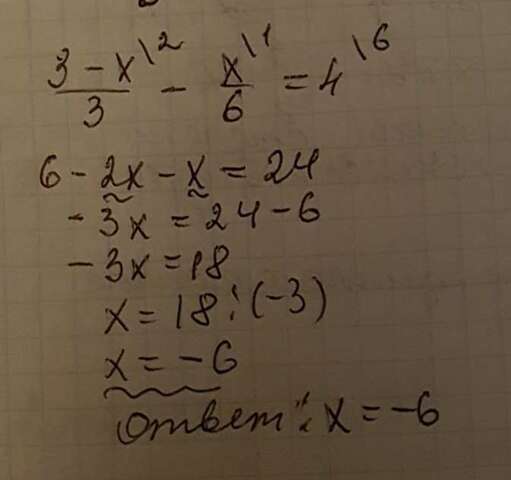 3 - x\2 / 3 - x\1 / 6 = 4\6
6 - 2x - x = 24
- 3x = 24 - 6
- 3x = 18
x = 18 : (-3)
x = -6
Ответ: x = -6